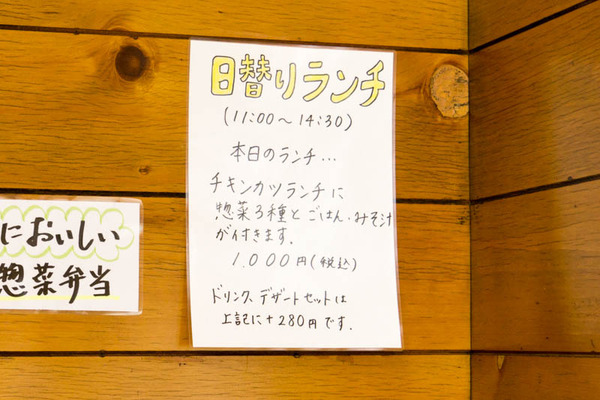 日替りランチ
(11:00〜14:30)
本日のランチ...
チキンカツランチに
惣菜3種とごはん・みそ汁
が付きます.
1.000円(税込)
ドリンク、デザートセットは
上記に+280円です.
においしい
惣菜弁当